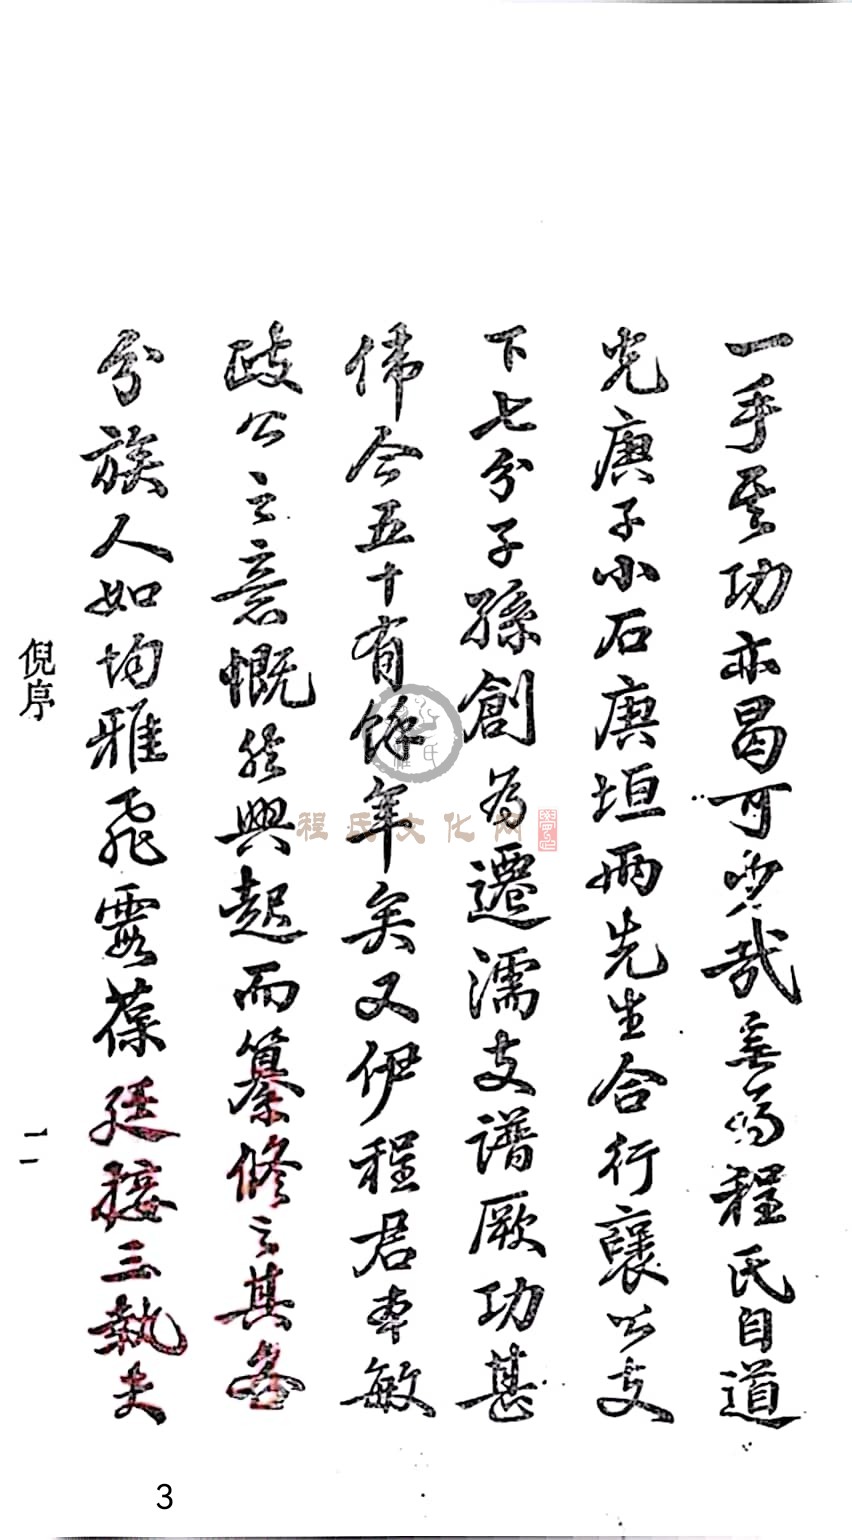 一手其功亦曷可少哉無為程氏自道
光庚子小石庚垣兩先生合行襄公支
下七分子孫創為遷濡支譜厥功甚
偉今五十有餘年矣又伊程君車敏
政公之意慨然興起而纂修之其各
分族人如均雅飛霞葆廷接三執夫
倪序
二
程氏文化网
3